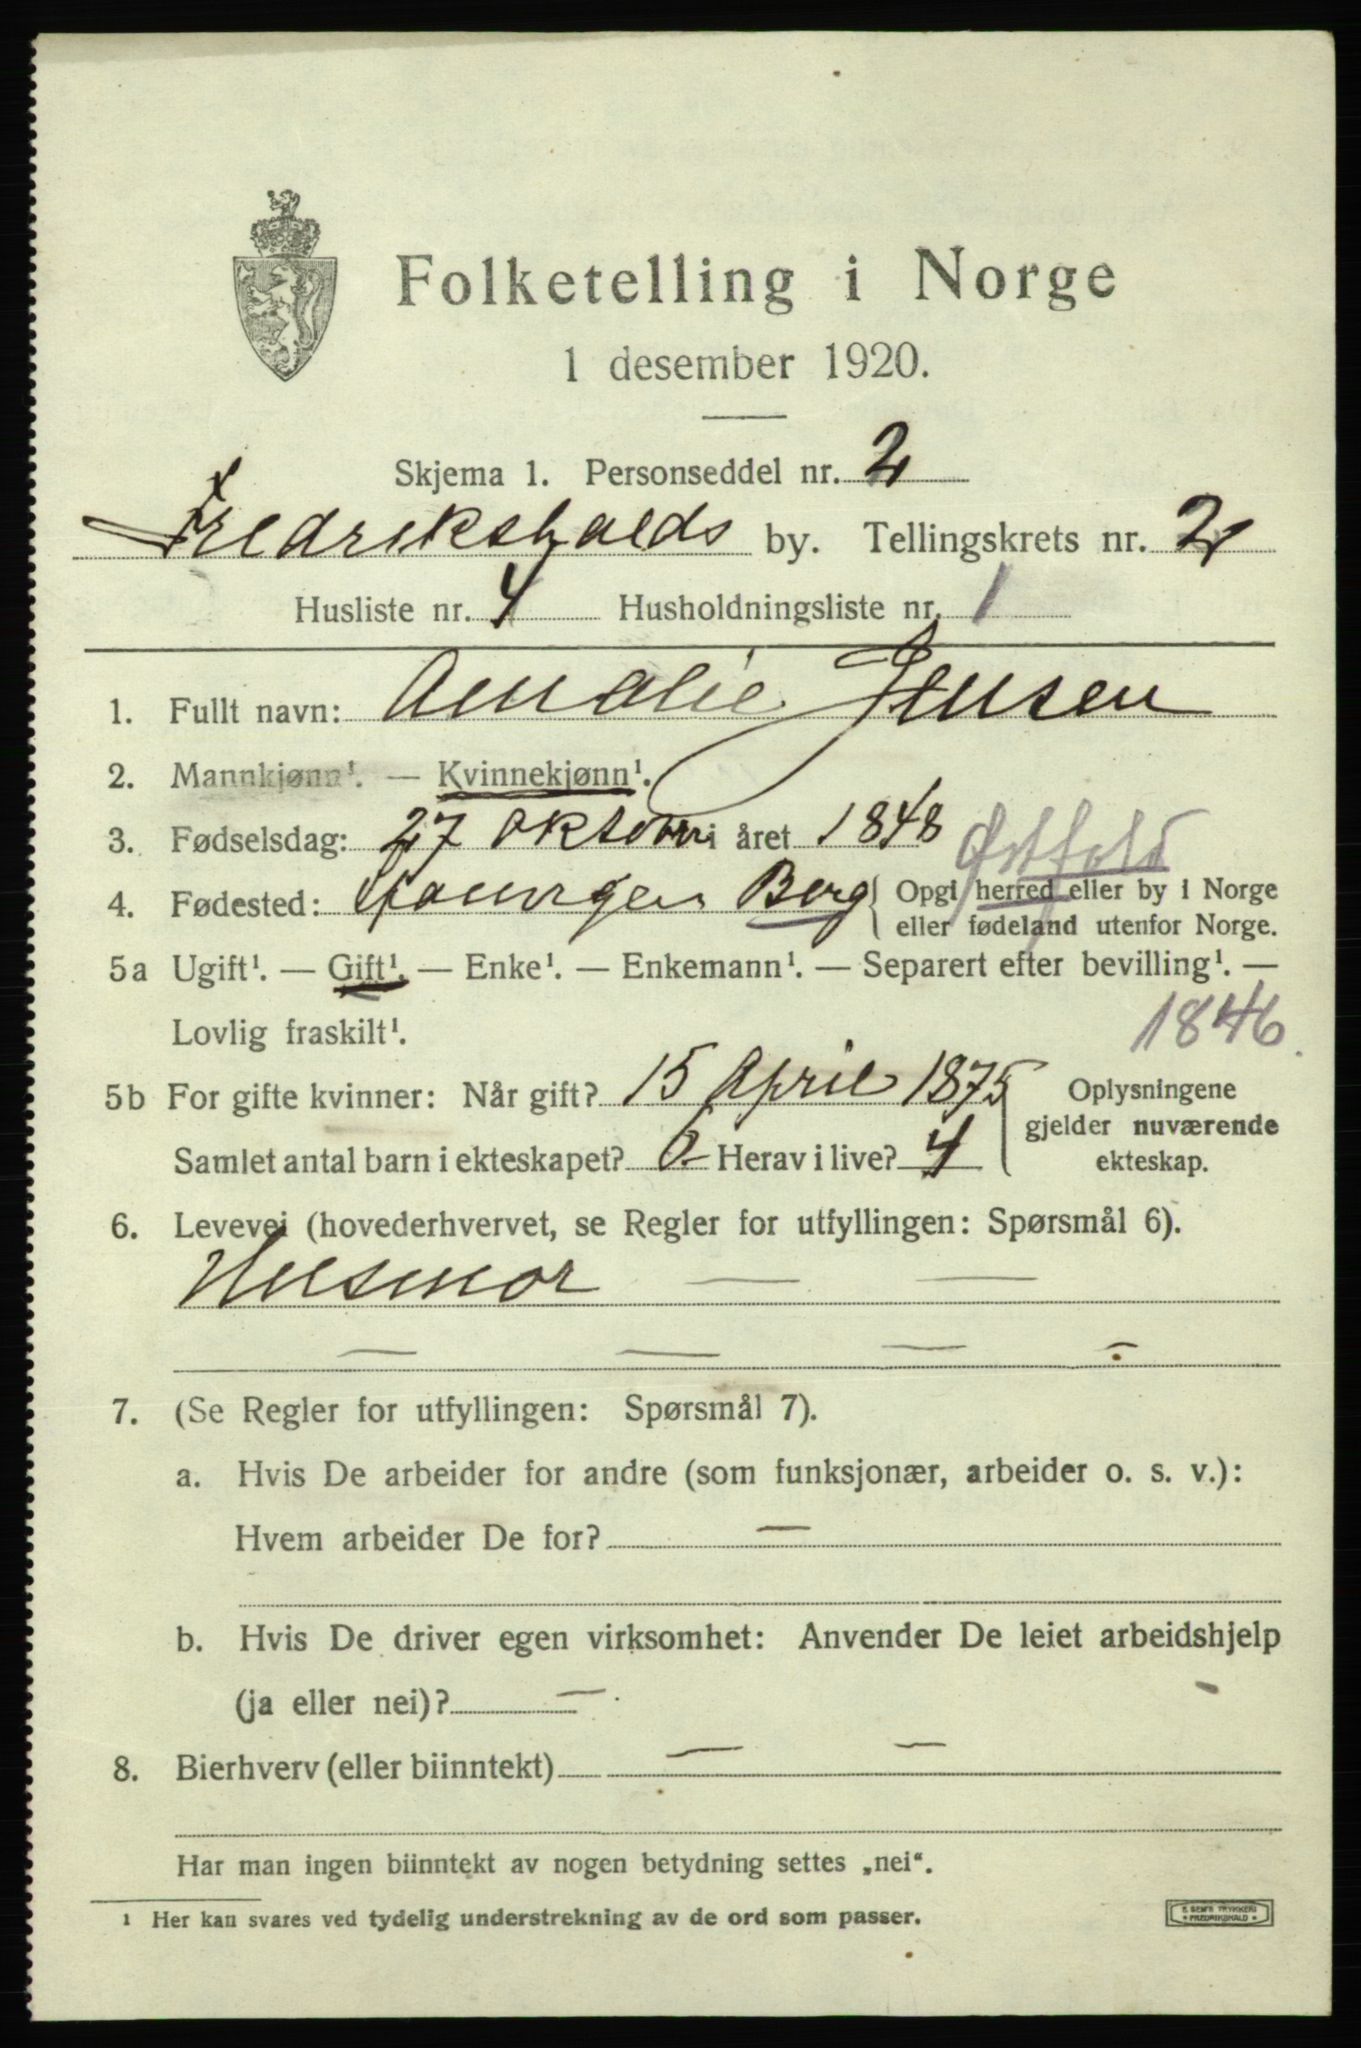 Folketelling i Norge
1 desember 1920.
Skjema 1. Personseddel nr. 2
Fredrikshalds by. Tellingskrets nr. 2
Husliste nr. 4 Husholdningsliste nr. 1
1. Fullt navn: Amalie Jensen
2. Mannkjønn¹. — Kvinnekjønn¹.
3. Fødselsdag: 27 Oktober i året 1848
Østfold
4. Fødested: Berg { Opgi herred eller by i Norge
eller fødeland utenfor Norge.
5a Ugift¹. — Gift¹. — Enke¹. — Enkemann¹. — Separert efter bevilling¹. —
Lovlig fraskilt¹.
1846
5b For gifte kvinner: Når gift? 15 April 1875 Oplysningene
gjelder nuværende
Samlet antal barn i ekteskapet? Herav i live? 4 ekteskap.
6. Levevei (hovederhvervet, se Regler for utfyllingen: Spørsmål 6).
Husmor — —
— — — —
7. (Se Regler for utfyllingen: Spørsmål 7).
a. Hvis De arbeider for andre (som funksjonær, arbeider o. s. v.):
Hvem arbeider De for? —
b. Hvis De driver egen virksomhet: Anvender De leiet arbeidshjelp
(ja eller nei)? —
8. Bierhverv (eller biinntekt) — —
Har man ingen biinntekt av nogen betydning settes „nei“.
¹ Her kan svares ved tydelig understrekning av de ord som passer.
E SEM'S TRYKKERI
FREDRIKSHALD